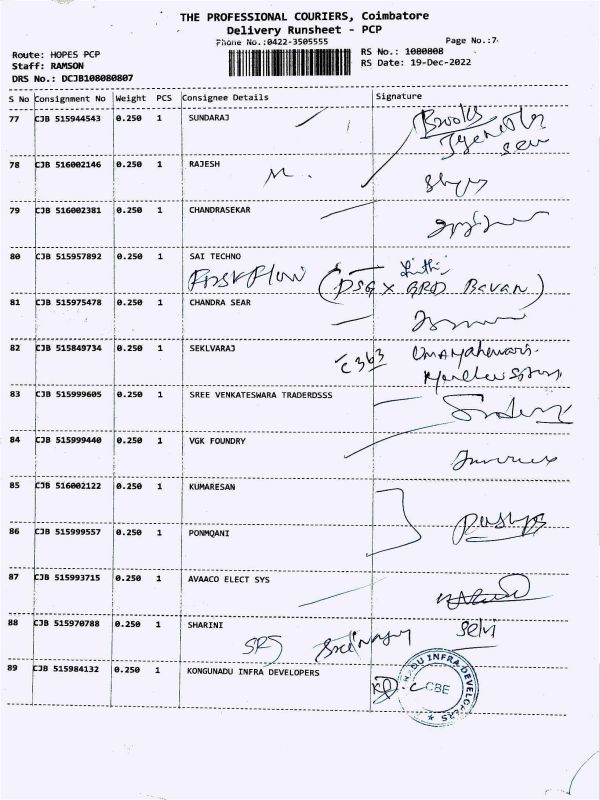 THE PROFESSIONAL COURIERS, Coimbatore
Delivery Runsheet - PCP
Phone No.:0422-3505555
Page No.:7
Route: HOPES PCP
RS No.: 1080808
Staff: RAMSON
RS Date: 19-Dec-2022
DRS No.: DCJB108080807
S No Consignment No Weight PCS Consignee Details Signature
77 CJB 515944543 0.250 1 SUNDARAJ
Brooks
78 CJB 516002146 0.250 1 RAJESH
79 CJB 516002381 0.250 1 CHANDRASEKAR
80 CJB 515957892 0.250 1 SAI TECHNO
First Flow (DSG X GRD Bavan)
81 CJB 515975478 0.250 1 CHANDRA SEAR
82 CJB 515849734 0.250 1 SEKLVARAJ
C363
83 CJB 515999605 0.250 1 SREE VENKATESWARA TRADERDSSS
84 CJB 515999440 0.250 1 VGK FOUNDRY
85 CJB 516002122 0.250 1 KUMARESAN
86 CJB 515999557 0.250 1 PONMQANI
87 CJB 515993715 0.250 1 AVAACO ELECT SYS
88 CJB 515970788 0.250 1 SHARINI
SRS Selvi
89 CJB 515984132 0.250 1 KONGUNADU INFRA DEVELOPERS
DU INFRA DEVELOPERS
CBE